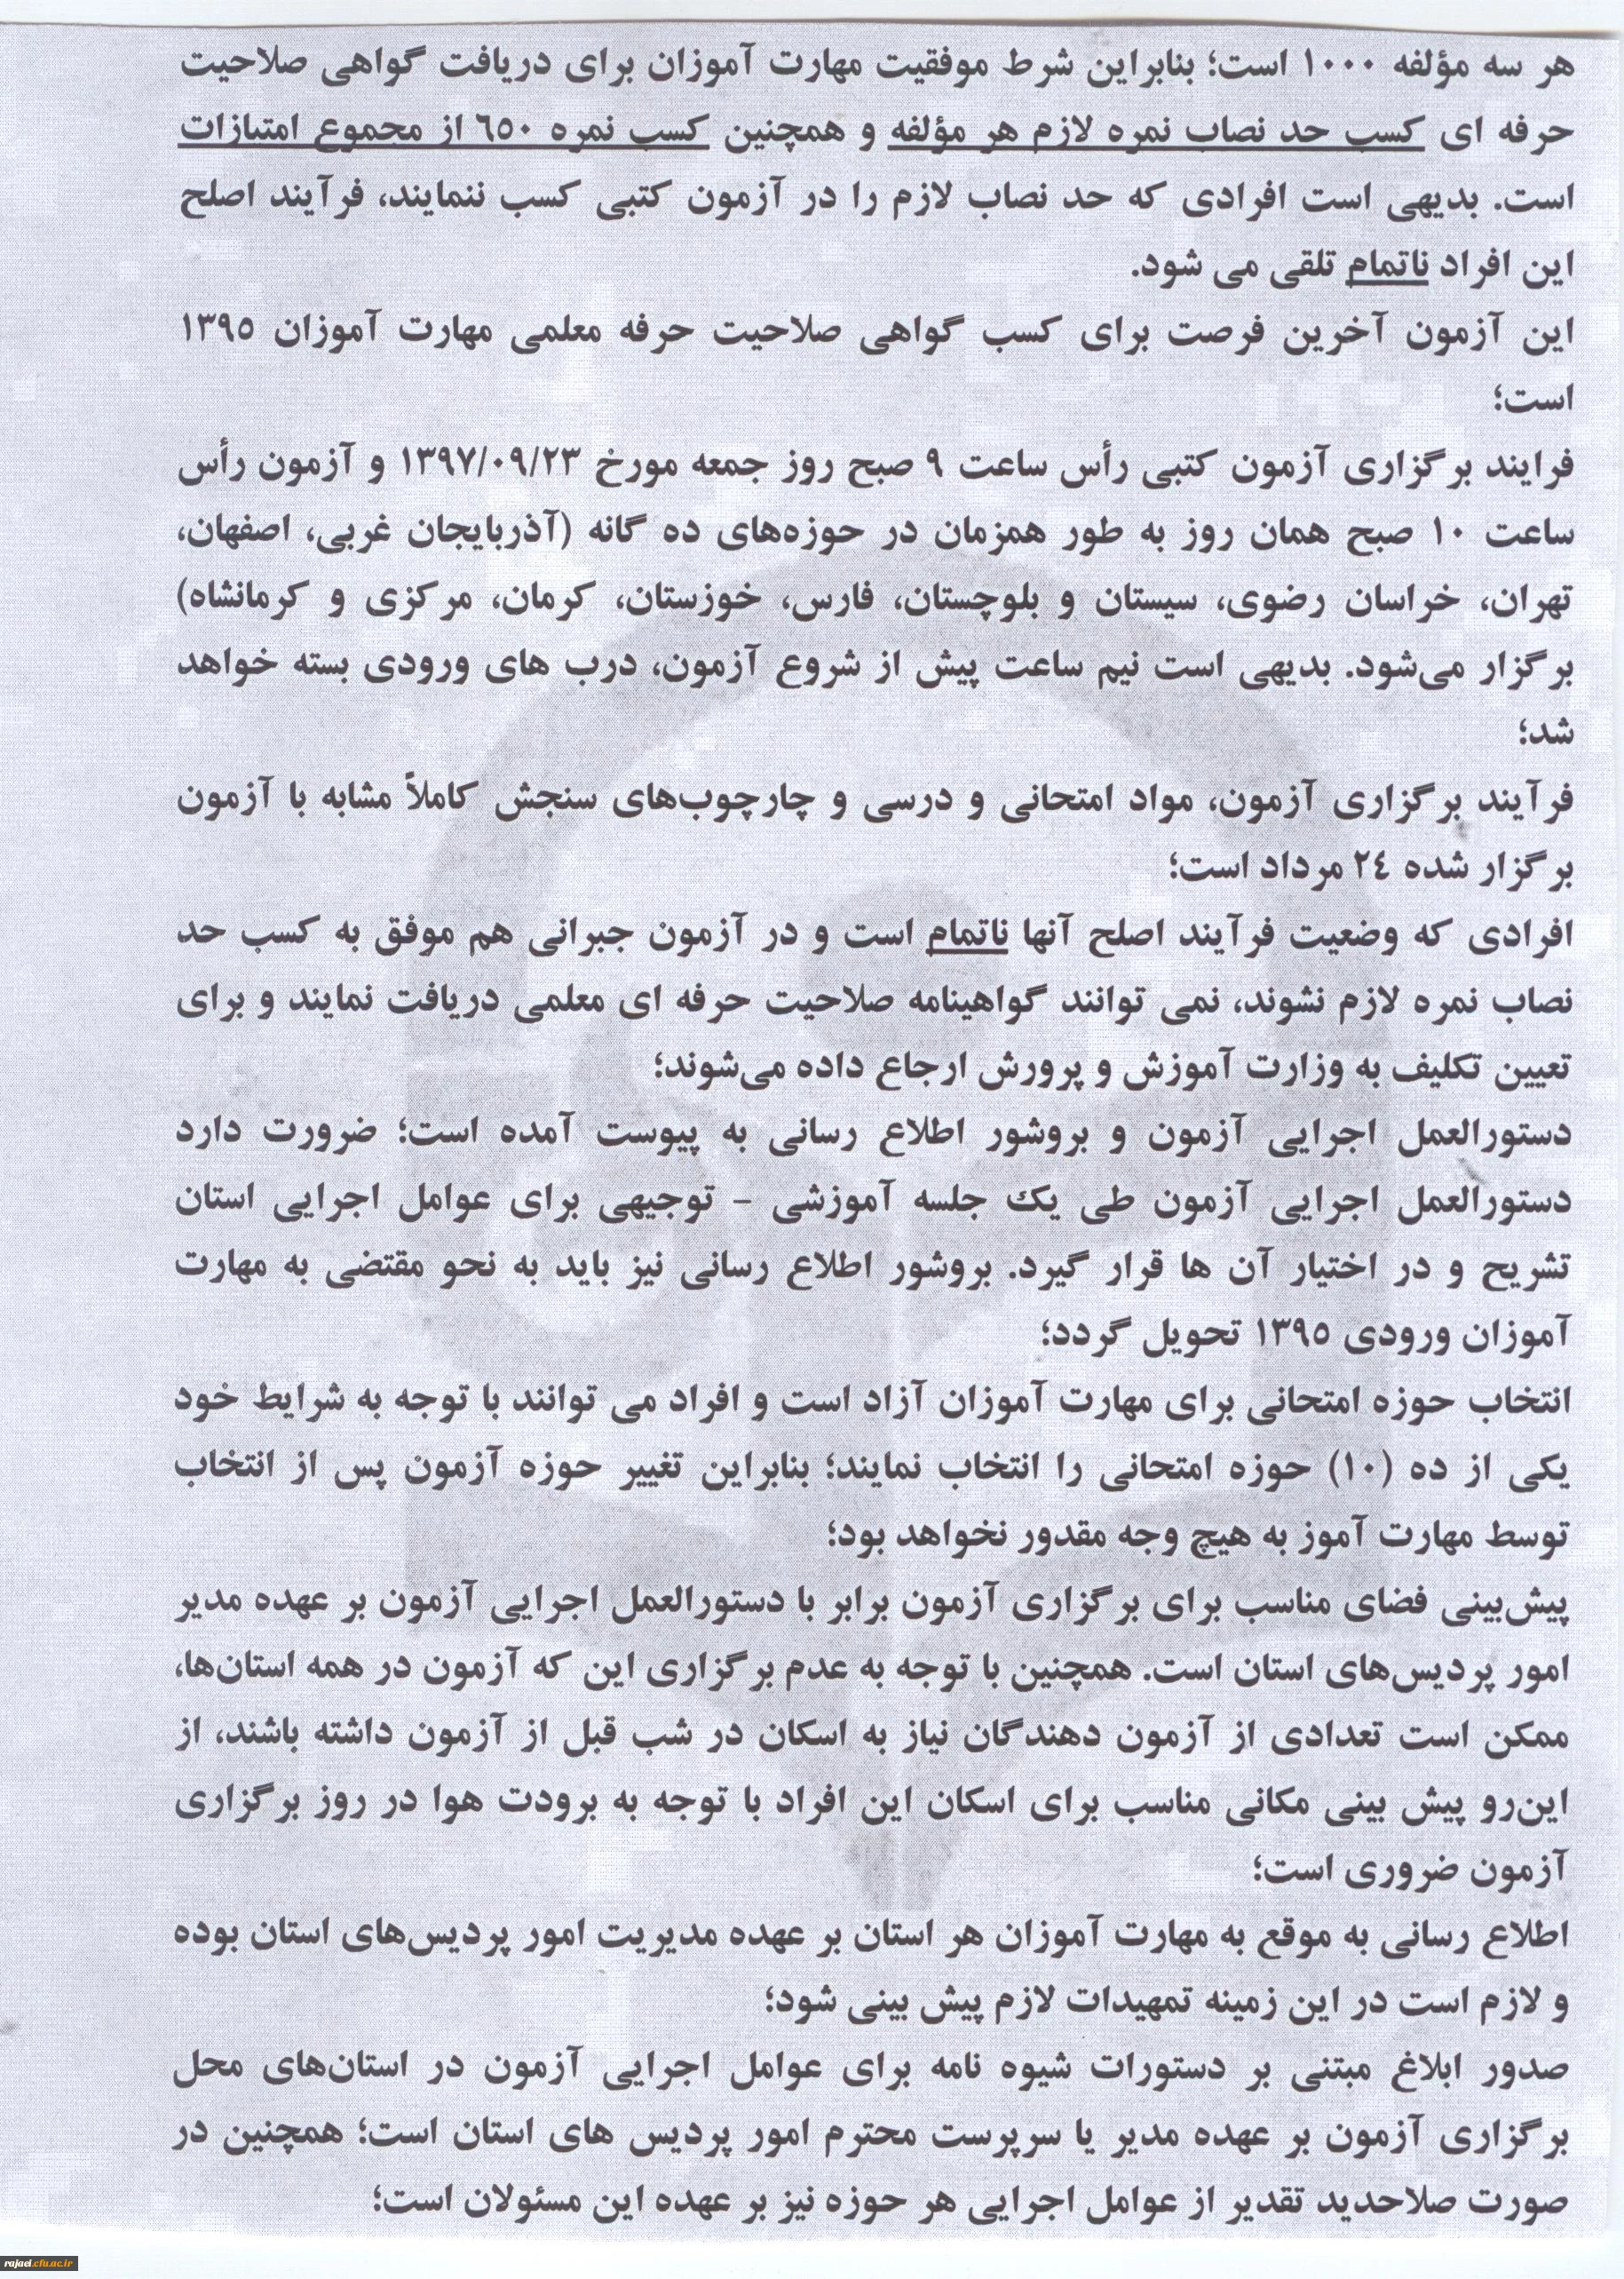 هر سه مؤلفه ۱۰۰۰ است؛ بنابراین شرط موفقیت مهارت آموزان برای دریافت گواهی صلاحیت
حرفه ای کسب حد نصاب نمره لازم هر مؤلفه و همچنین کسب نمره ٦٥٠ از مجموع امتیازات
است. بدیهی است افرادی که حد نصاب لازم را در آزمون کتبی کسب ننمایند، فرآیند اصلح
این افراد ناتمام تلقی می شود.
این آزمون آخرین فرصت برای کسب گواهی صلاحیت حرفه معلمی مهارت آموزان ۱۳۹٥
است؛
فرایند برگزاری آزمون کتبی رأس ساعت ۹ صبح روز جمعه مورخ ۱۳۹۷/۰۹/۲۳ و آزمون رأس
ساعت ۱۰ صبح همان روز به طور همزمان در حوزه‌های ده گانه (آذربایجان غربی، اصفهان،
تهران، خراسان رضوی، سیستان و بلوچستان، فارس، خوزستان، کرمان، مرکزی و کرمانشاه)
برگزار می‌شود. بدیهی است نیم ساعت پیش از شروع آزمون، درب های ورودی بسته خواهد
شد؛
فرآیند برگزاری آزمون، مواد امتحانی و درسی و چارچوب‌های سنجش کاملاً مشابه با آزمون
برگزار شده ۲٤ مرداد است؛
افرادی که وضعیت فرآیند اصلح آنها ناتمام است و در آزمون جبرانی هم موفق به کسب حد
نصاب نمره لازم نشوند، نمی توانند گواهینامه صلاحیت حرفه ای معلمی دریافت نمایند و برای
تعیین تکلیف به وزارت آموزش و پرورش ارجاع داده می‌شوند؛
دستورالعمل اجرایی آزمون و بروشور اطلاع رسانی به پیوست آمده است؛ ضرورت دارد
دستورالعمل اجرایی آزمون طی یك جلسه آموزشی - توجیهی برای عوامل اجرایی استان
تشریح و در اختیار آن ها قرار گیرد. بروشور اطلاع رسانی نیز باید به نحو مقتضی به مهارت
آموزان ورودی ۱۳۹٥ تحویل گردد؛
انتخاب حوزه امتحانی برای مهارت آموزان آزاد است و افراد می توانند با توجه به شرایط خود
یکی از ده (۱۰) حوزه امتحانی را انتخاب نمایند؛ بنابراین تغییر حوزه آزمون پس از انتخاب
توسط مهارت آموز به هیچ وجه مقدور نخواهد بود؛
پیش‌بینی فضای مناسب برای برگزاری آزمون برابر با دستورالعمل اجرایی آزمون بر عهده مدیر
امور پردیس‌های استان است. همچنین با توجه به عدم برگزاری این که آزمون در همه استان‌ها،
ممکن است تعدادی از آزمون دهندگان نیاز به اسکان در شب قبل از آزمون داشته باشند، از
این‌رو پیش بینی مکانی مناسب برای اسکان این افراد با توجه به برودت هوا در روز برگزاری
آزمون ضروری است؛
اطلاع رسانی به موقع به مهارت آموزان هر استان بر عهده مدیریت امور پردیس‌های استان بوده
و لازم است در این زمینه تمهیدات لازم پیش بینی شود؛
صدور ابلاغ مبتنی بر دستورات شیوه نامه برای عوامل اجرایی آزمون در استان‌های محل
برگزاری آزمون بر عهده مدیر یا سرپرست محترم امور پردیس های استان است؛ همچنین در
صورت صلاحدید تقدیر از عوامل اجرایی هر حوزه نیز بر عهده این مسئولان است؛
rajaei.cfu.ac.ir